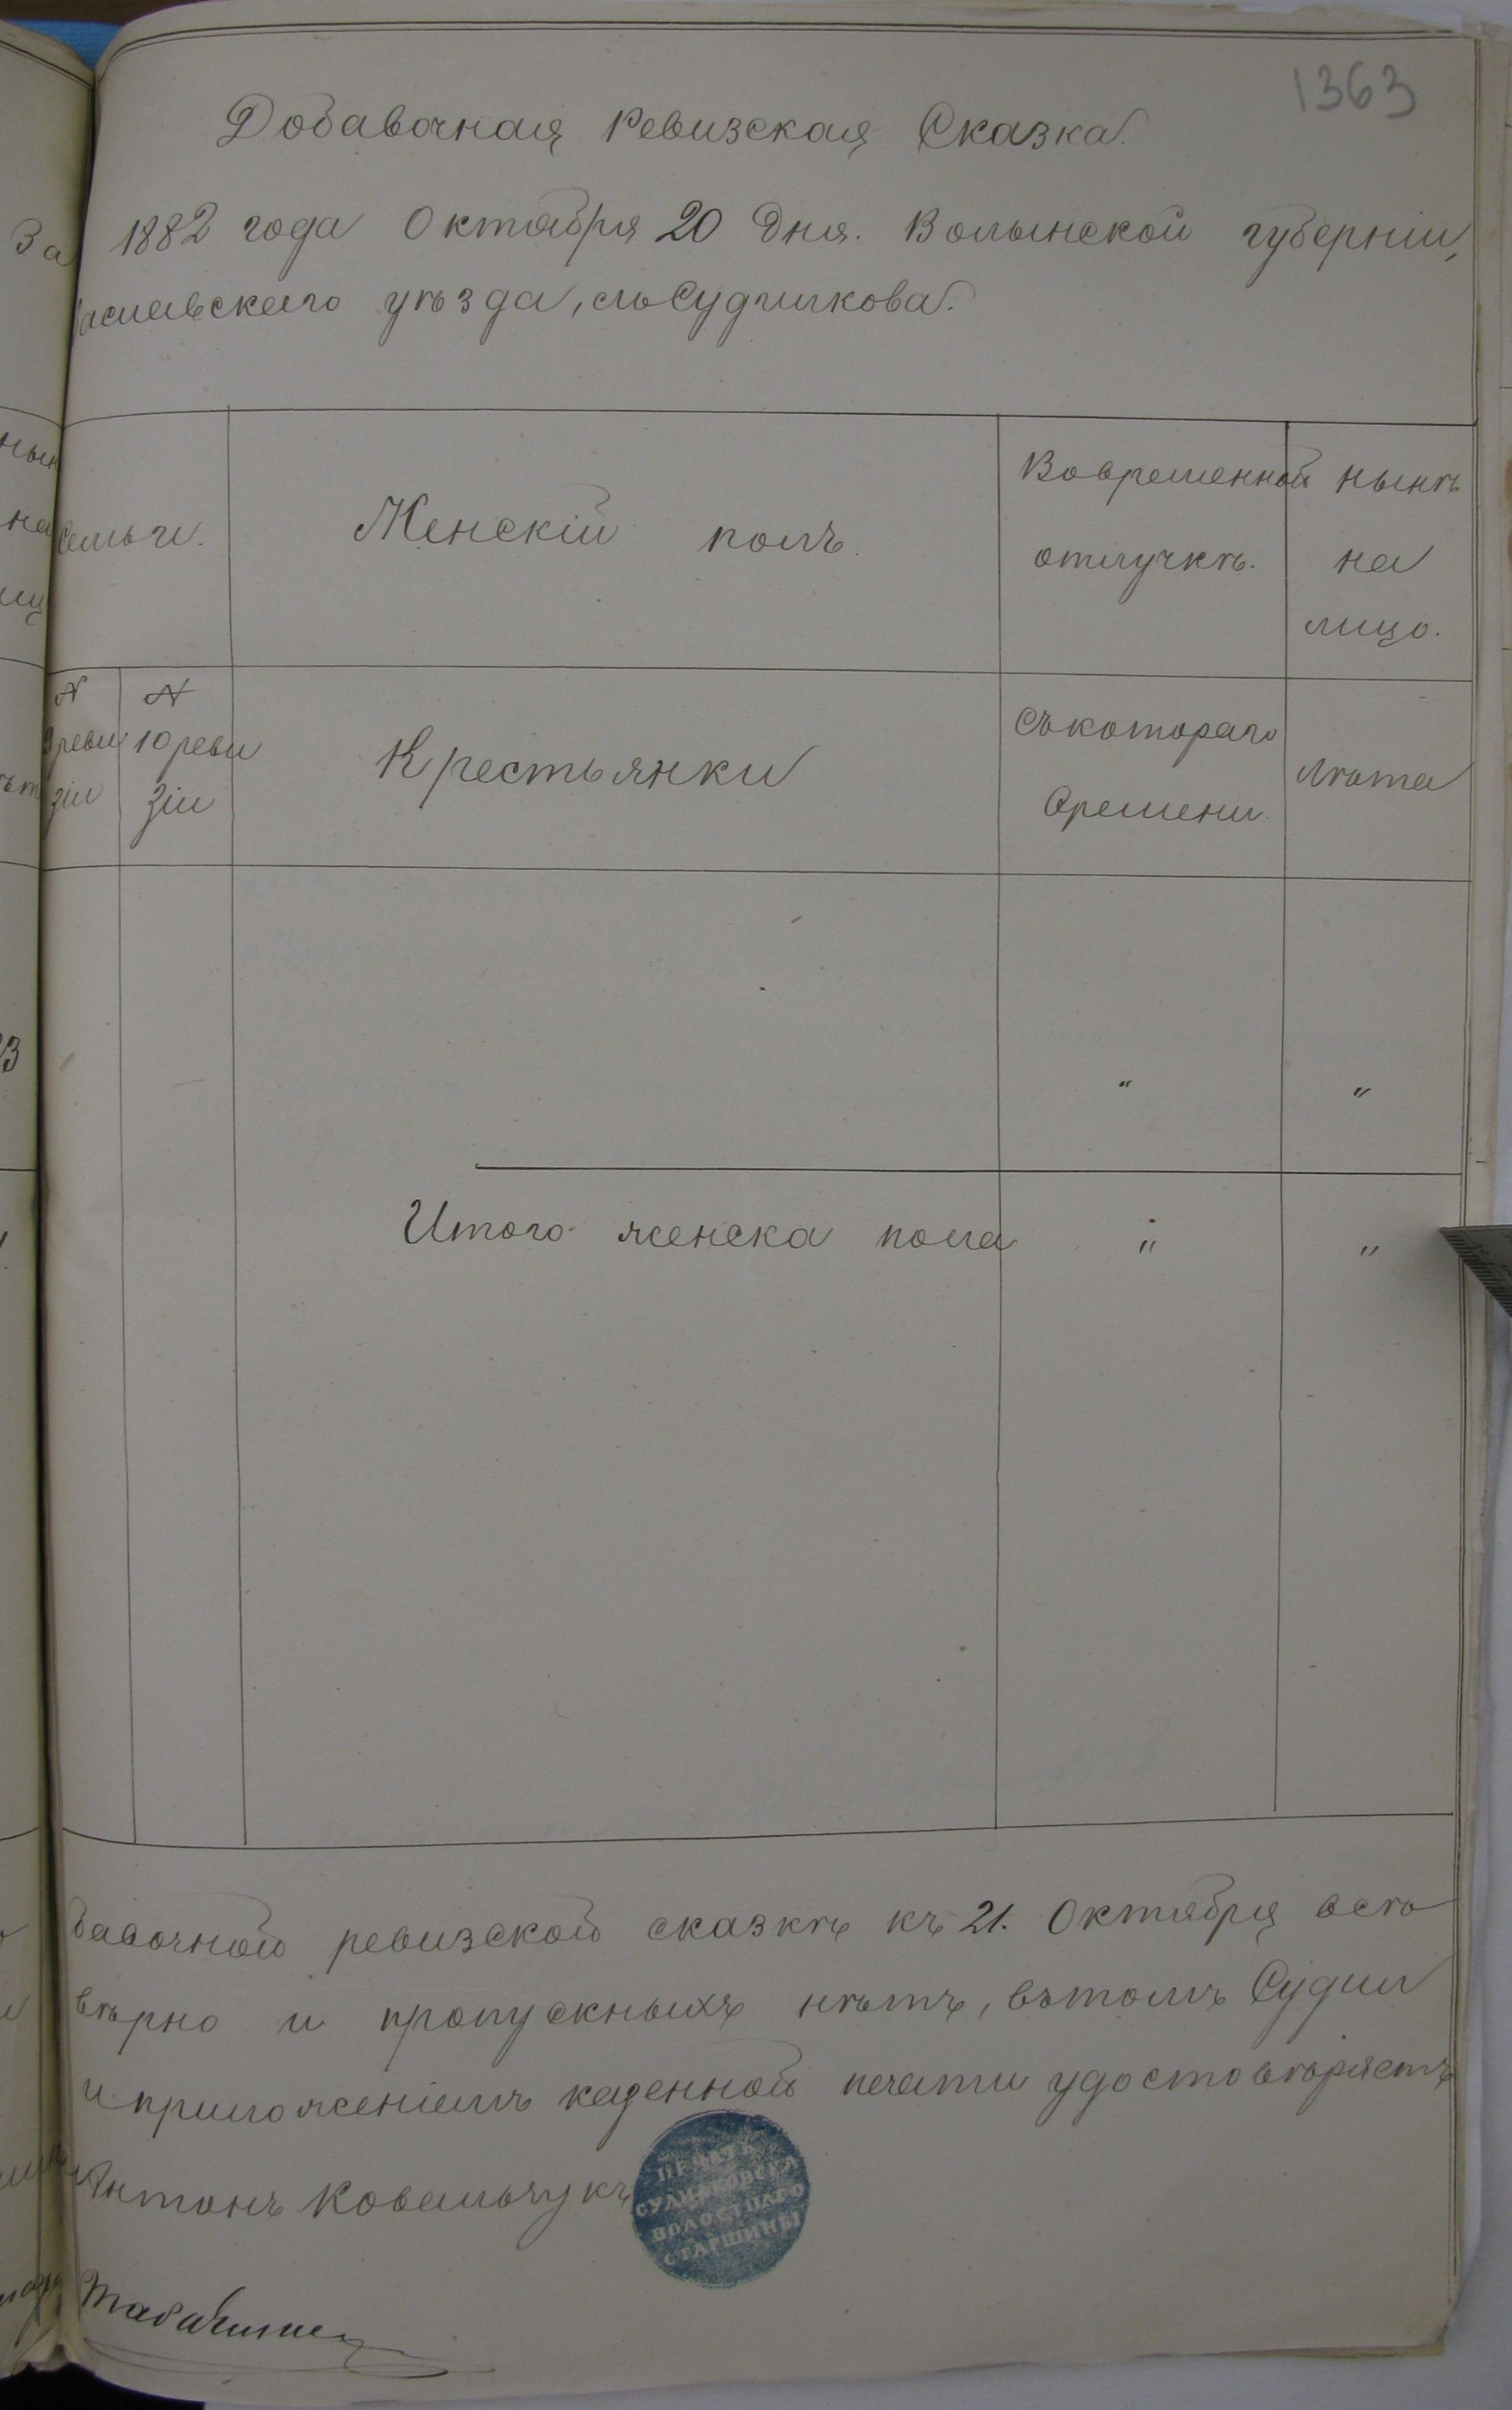 1363
Добавочная Ревизская Сказка.
1882 года Октября 20 дня. Волынской губерніи,
аславскаго уѣзда, м. Судилкова.
Семьи.
Женскій полъ.
Вовременной
отлучкѣ.
нынѣ
на
лицо.
N
9 реви
зіи
N
10 реви
зіи
Крестьянки
Съкотораго
времени.
Лѣта
"
"
Итого женска пола
"
"
бавочной ревизской сказкѣ къ 21. Октября всѣ
вѣрно и пропускныхъ нѣтъ, вътомъ Судил
и приложеніемъ казенной печати удостовѣряетъ
Антонъ Ковальчукъ
ПЕЧАТЬ
СУДИЛКОВСКА
ВОЛОСТНАГО
СТАРШИНЫ